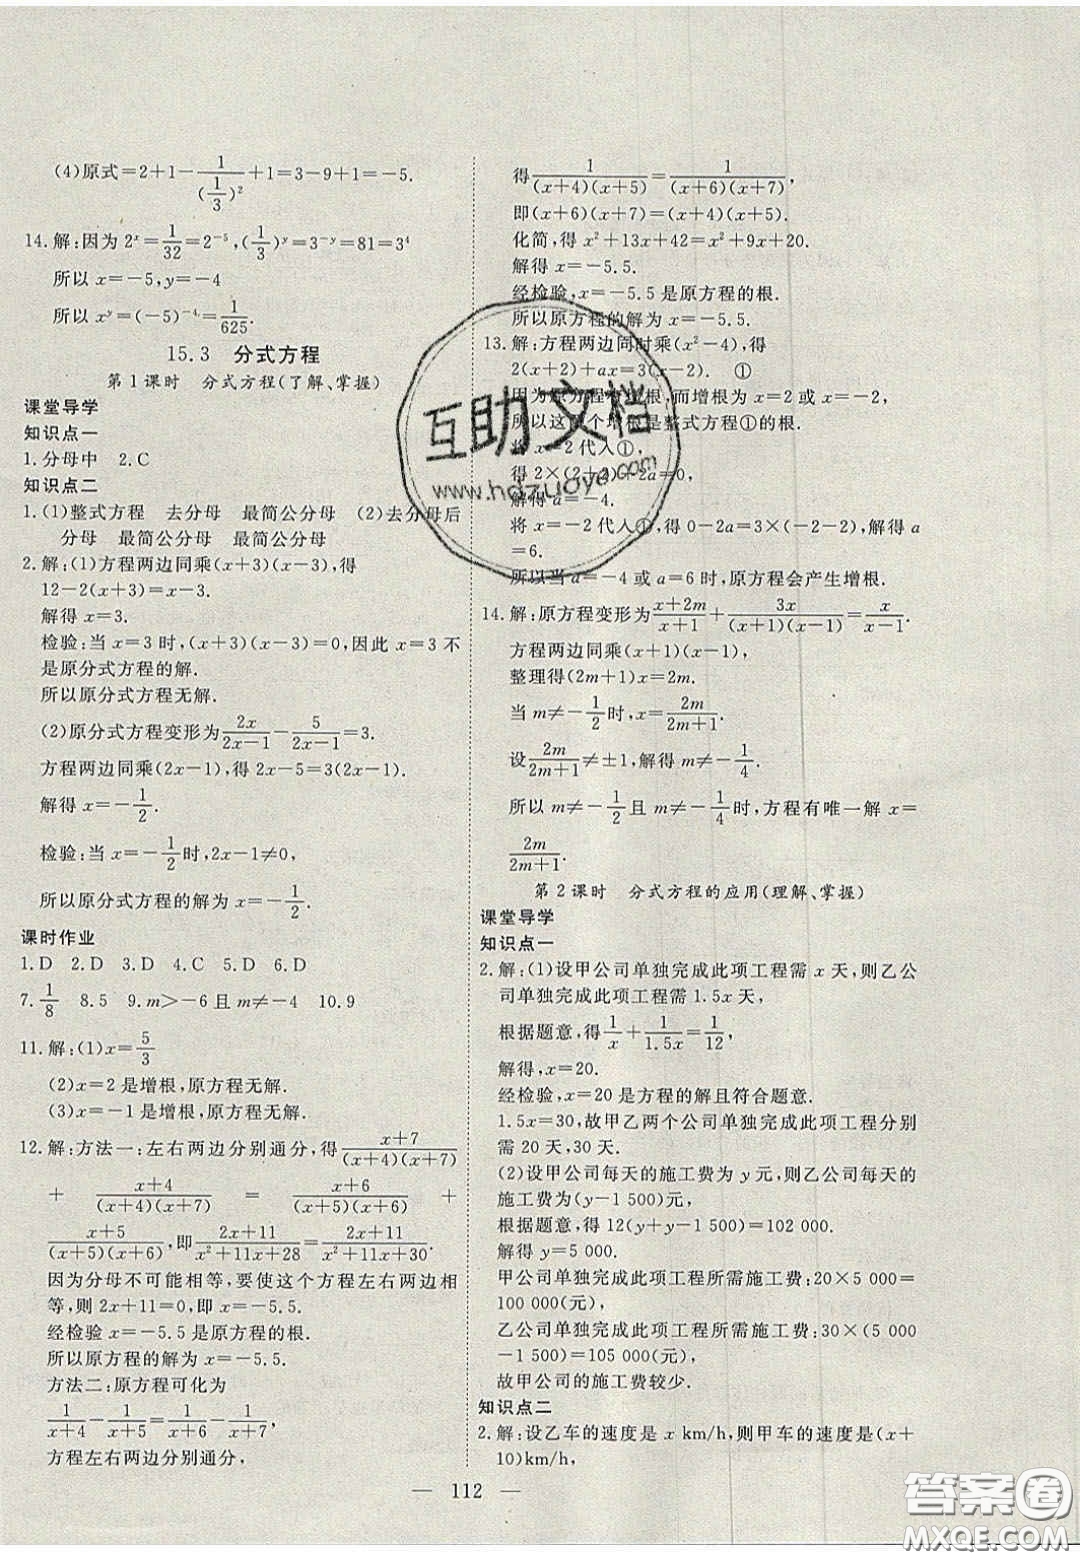 (4)原式=2+1-1/(1/3)²+1=3-9+1=-5.
14.解:因为 2ˣ=1/32=2⁻⁵,(1/3)ʸ=3⁻ʸ=81=3⁴
所以 x=-5,y=-4
所以 xʸ=(-5)⁻⁴=1/625.
15.3 分式方程
第1课时 分式方程(了解、掌握)
课堂导学
知识点一
1.分母中 2.C
知识点二
1.(1)整式方程 去分母 最简公分母 (2)去分母后
分母 最简公分母 最简公分母
2.解:(1)方程两边同乘(x+3)(x-3),得
12-2(x+3)=x-3.
解得 x=3.
检验:当 x=3 时,(x+3)(x-3)=0,因此 x=3 不
是原分式方程的解.
所以原分式方程无解.
(2)原分式方程变形为2x/(2x-1)-5/(2x-1)=3.
方程两边同乘(2x-1),得 2x-5=3(2x-1).
解得 x=-1/2.
检验:当 x=-1/2时,2x-1≠0,
所以原分式方程的解为 x=-1/2.
课时作业
1.D 2.D 3.D 4.C 5.D 6.D
7.1/8 8.5 9.m>-6 且 m≠-4 10.9
11.解:(1)x=5/3
(2)x=2 是增根,原方程无解.
(3)x=-1 是增根,原方程无解.
12.解:方法一:左右两边分别通分,得(x+7)/((x+4)(x+7))
+ (x+4)/((x+4)(x+7)) = (x+6)/((x+5)(x+6)) +
(x+5)/((x+5)(x+6)),即(2x+11)/(x²+11x+28)=(2x+11)/(x²+11x+30).
因为分母不可能相等,要使这个方程左右两边相
等,则 2x+11=0,即 x=-5.5.
经检验 x=-5.5 是原方程的根.
所以原方程的解为 x=-5.5.
方法二:原方程可化为
1/(x+4)-1/(x+5)=1/(x+6)-1/(x+7),
方程左右两边分别通分,
得1/((x+4)(x+5))=1/((x+6)(x+7)),
即(x+6)(x+7)=(x+4)(x+5).
化简,得 x²+13x+42=x²+9x+20.
解得 x=-5.5.
经检验,x=-5.5 是原方程的根.
所以原方程的解为 x=-5.5.
13.解:方程两边同时乘(x²-4),得
2(x+2)+ax=3(x-2). ①
因为原方程有增根,而增根为 x=2 或 x=-2,
所以这两个增根是整式方程①的根.
将 x=2 代入①,
得 2×(2+2)+2a=0,
解得 a=-4.
将 x=-2 代入①,得 0-2a=3×(-2-2),解得 a
=6.
所以当 a=-4 或 a=6 时,原方程会产生增根.
14.解:原方程变形为(x+2m)/(x+1)+3x/((x+1)(x-1))=x/(x-1).
方程两边同乘(x+1)(x-1),
整理得(2m+1)x=2m.
当 m≠-1/2时,x=2m/(2m+1).
设2m/(2m+1)≠±1,解得 m≠-1/4.
所以 m≠-1/2且 m≠-1/4时,方程有唯一解 x=
2m/(2m+1).
第2课时 分式方程的应用(理解、掌握)
课堂导学
知识点一
2.解:(1)设甲公司单独完成此项工程需 x 天,则乙公
司单独完成此项工程需 1.5x天,
根据题意,得1/x+1/1.5x=1/12,
解得,x=20.
经检验,x=20 是方程的解且符合题意.
1.5x=30,故甲乙两个公司单独完成此项工程分别
需 20 天,30 天.
(2)设甲公司每天的施工费为 y 元,则乙公司每天的
施工费为(y-1 500)元,
根据题意,得 12(y+y-1 500)=102 000.
解得 y=5 000.
甲公司单独完成此项工程所需施工费:20×5 000=
100 000(元),
乙公司单独完成此项工程所需施工费:30×(5 000
-1 500)=105 000(元),
故甲公司的施工费较少.
知识点二
2.解:设乙车的速度是 x km/h,则甲车的速度是(x+
10)km/h,
— 112 —
互助文档
www.hdzuoye.com
答案圈
MXQE.COM